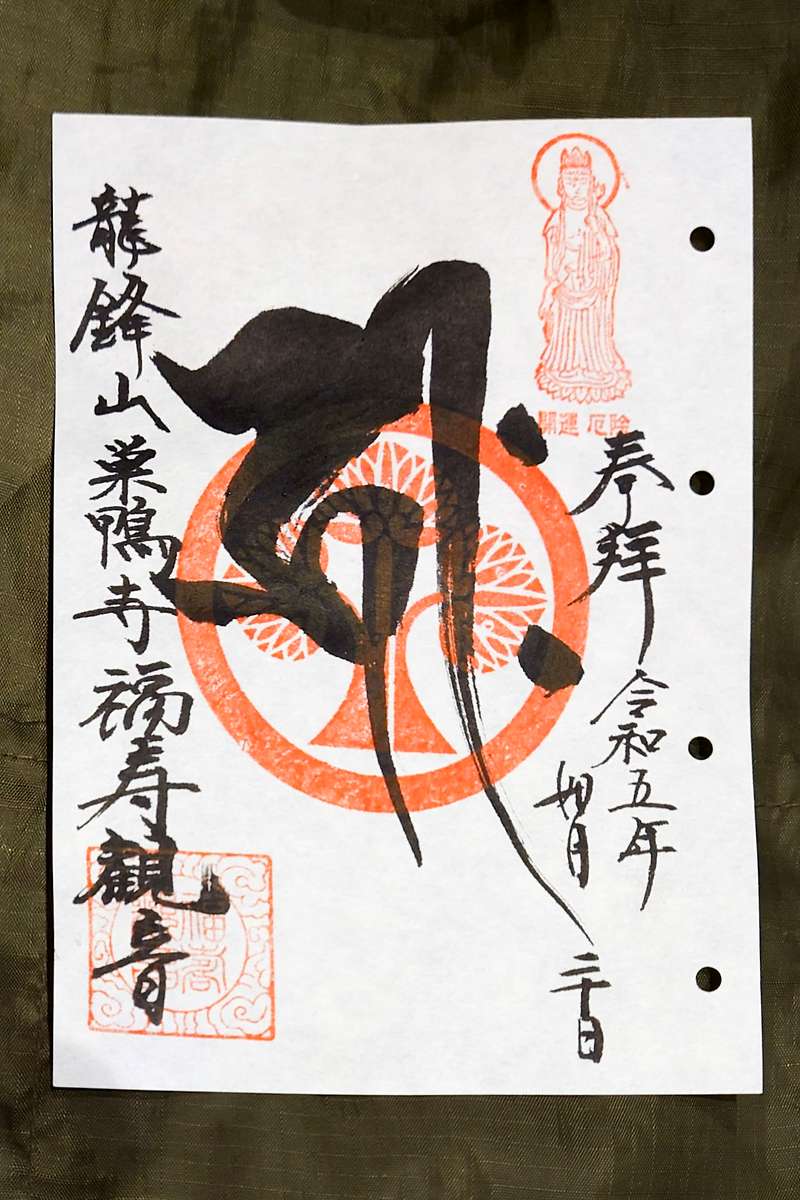 開運 厄除
奉拝
令和五年
如月
二十日
龍鋒山巣鴨寺福寿観音